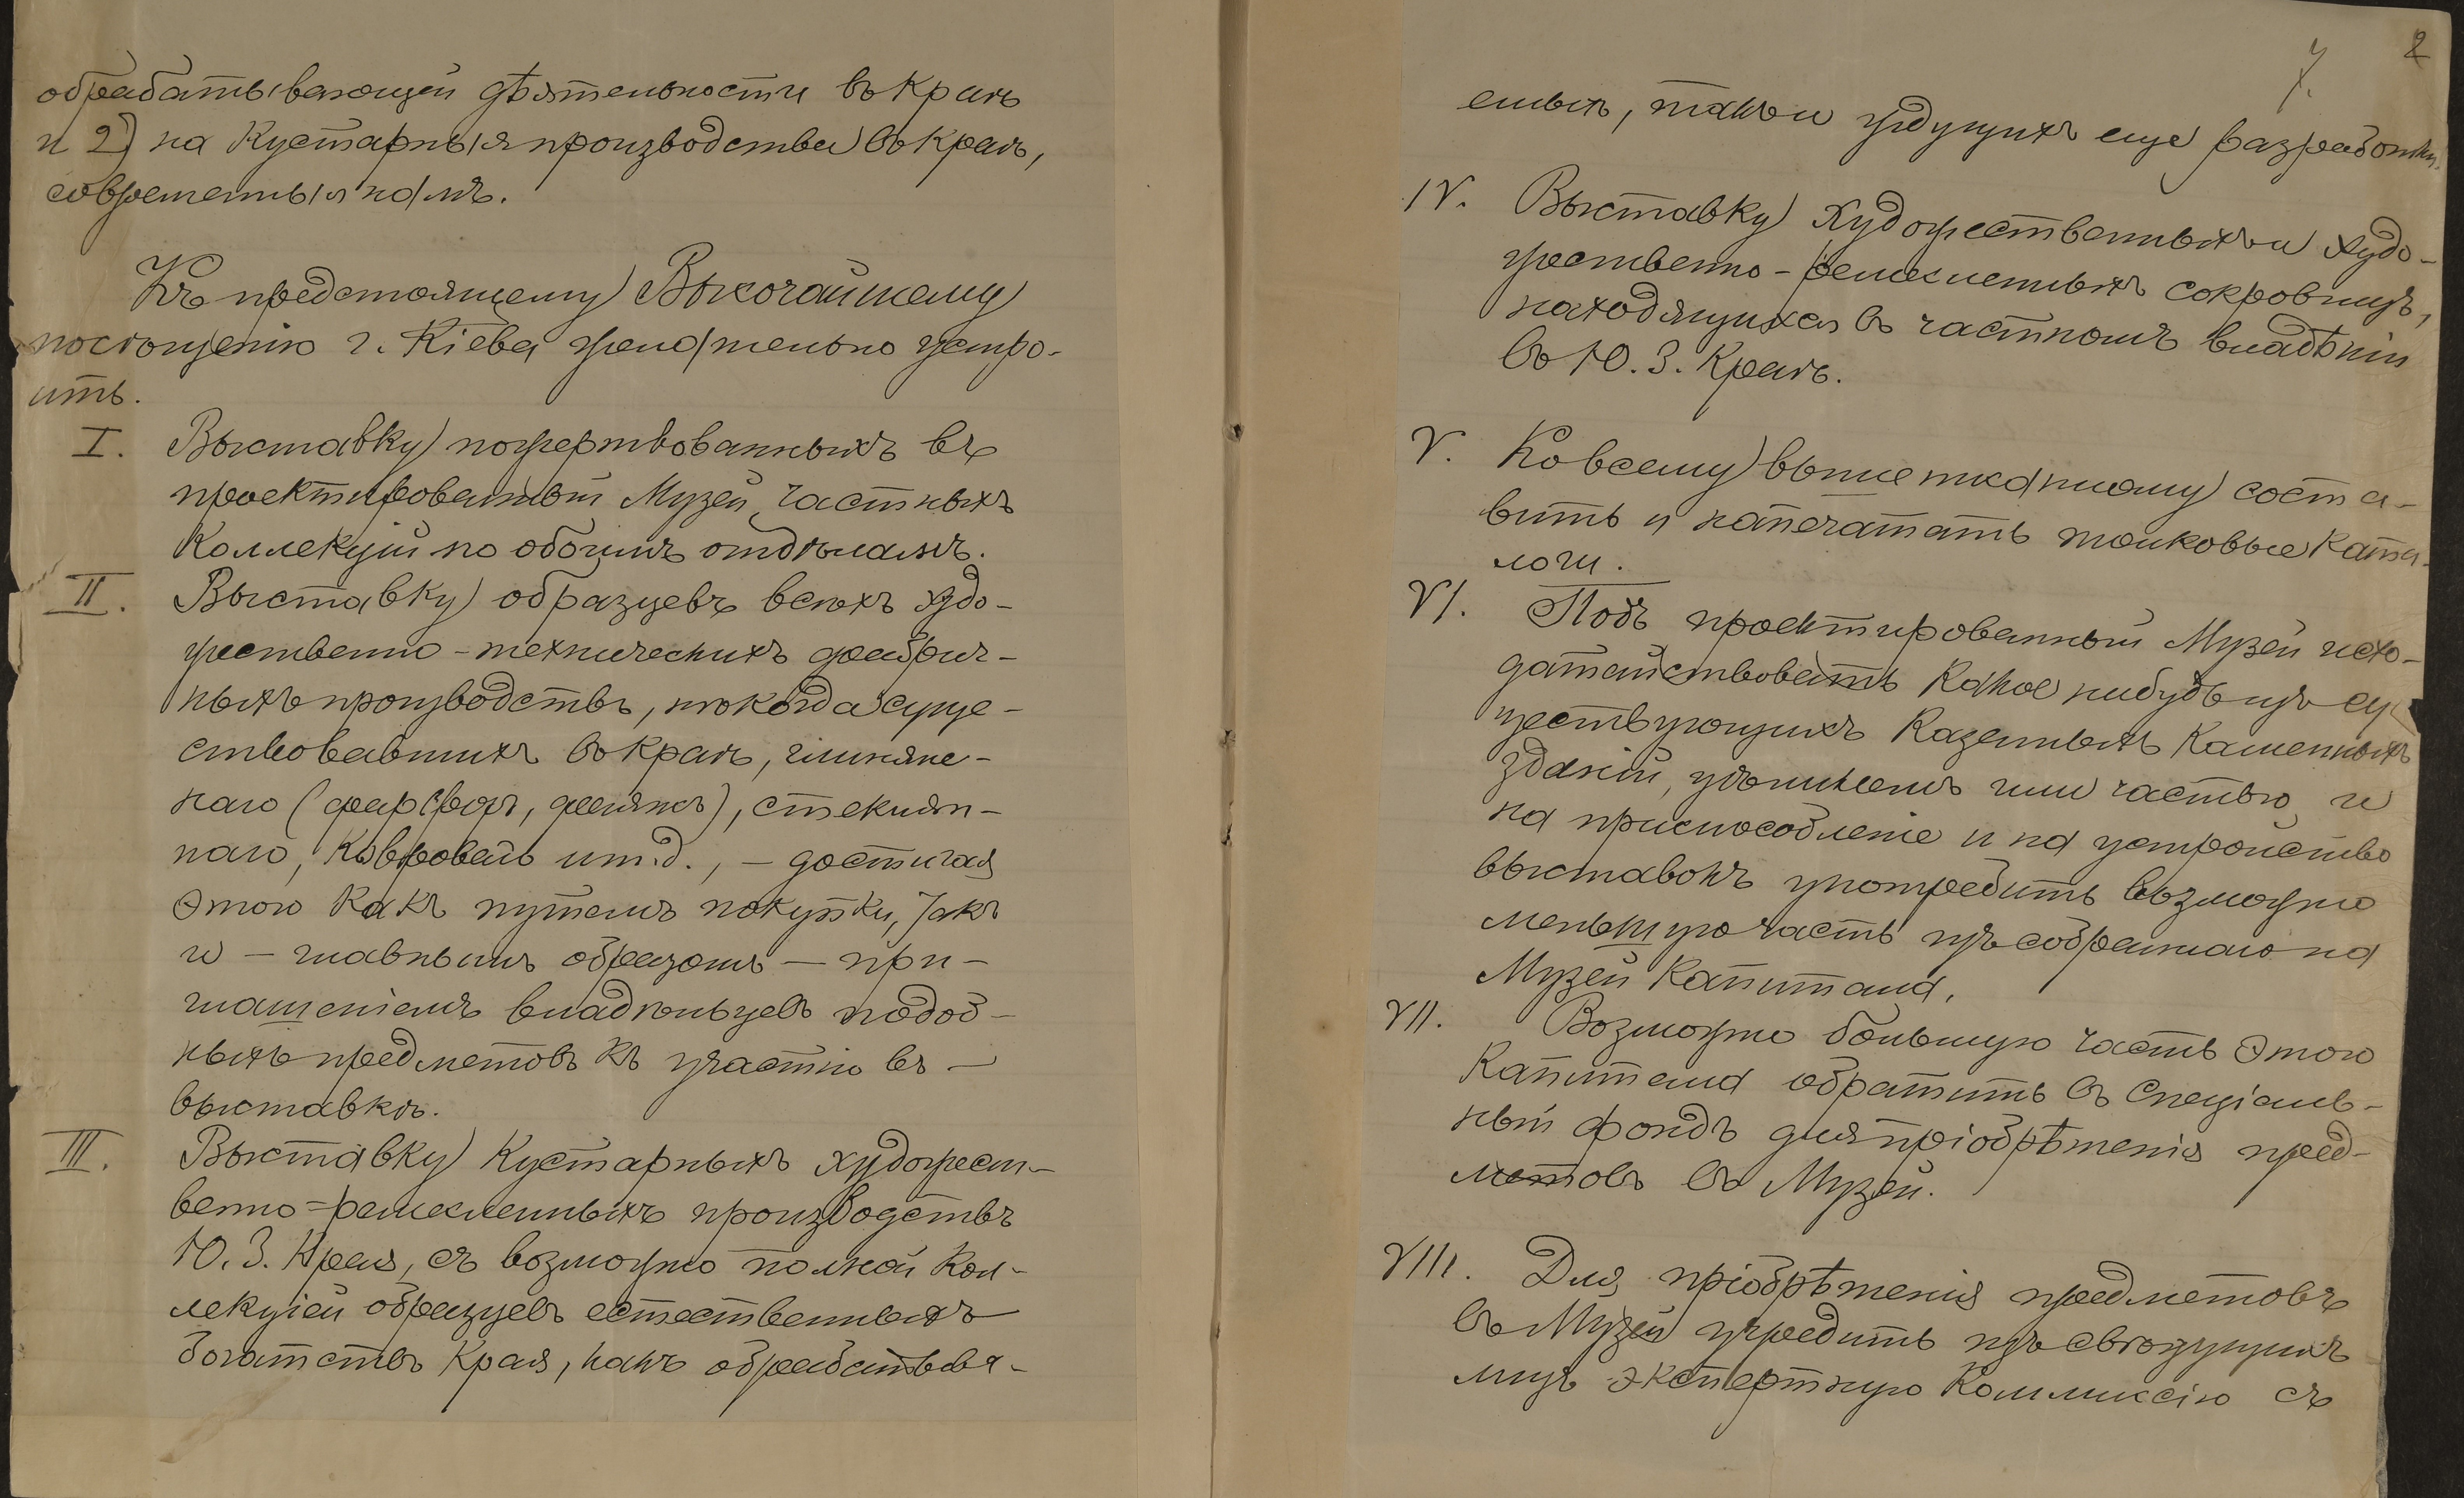 обрабатывающей дѣятельности въ Краѣ
и 2) на Кустарныя производства въ Краѣ,
современныя намъ.
Къ предстоящему Высочайшему
посѣщенію г. Кіева желательно устро-
ить.
I. Выставку пожертвованныхъ въ
проектированный Музей частныхъ
Коллекцій по обоимъ отдѣламъ.
II. Выставку образцевъ всѣхъ худо-
жественно-техническихъ фабрич-
ныхъ производствъ, нѣкогда суще-
ствовавшихъ въ Краѣ, глиняне-
наго (фарфоръ, фаянсъ), стеклян-
наго, Ковроваго и т.д., – достигая
этого какъ путемъ покупки, такъ
и – главнымъ образомъ – при-
глашеніемъ владѣльцевъ подоб-
ныхъ предметовъ къ участію въ –
выставкѣ.
III. Выставку Кустарныхъ художест-
венно-ремесленныхъ производствъ
Ю. З. Края, съ возможно полной Кол-
лекціей образцевъ естественныхъ
богатствъ Края, какъ обрабатывае-
2
емыхъ, такъ и ждущихъ еще разработки.
IV. Выставку Художественныхъ и худо-
жественно-ремесленныхъ сокровищъ,
находящихся въ частномъ владѣніи
въ Ю. З. Краѣ.
V. Ко всему вышесказанному соста-
вить и напечатать толковые Ката-
логи.
VI. Подъ проектированный Музей исхо-
датайствовать Какое нибудь изъ су-
ществующихъ Казенныхъ Каменныхъ
зданій, цѣликомъ или частью, и
на приспособленіе и на устройство
выставокъ употребить возможно
меньшую часть изъ собраннаго на
Музей Капитала.
VII. Возможно большую часть этого
Капитала обратить въ спеціаль-
ный фондъ для пріобрѣтенія пред-
метовъ въ Музей.
VIII. Для пріобрѣтенія предметовъ
въ Музей учредить изъ свѣдущихъ
лицъ экспертную Коммиссію съ